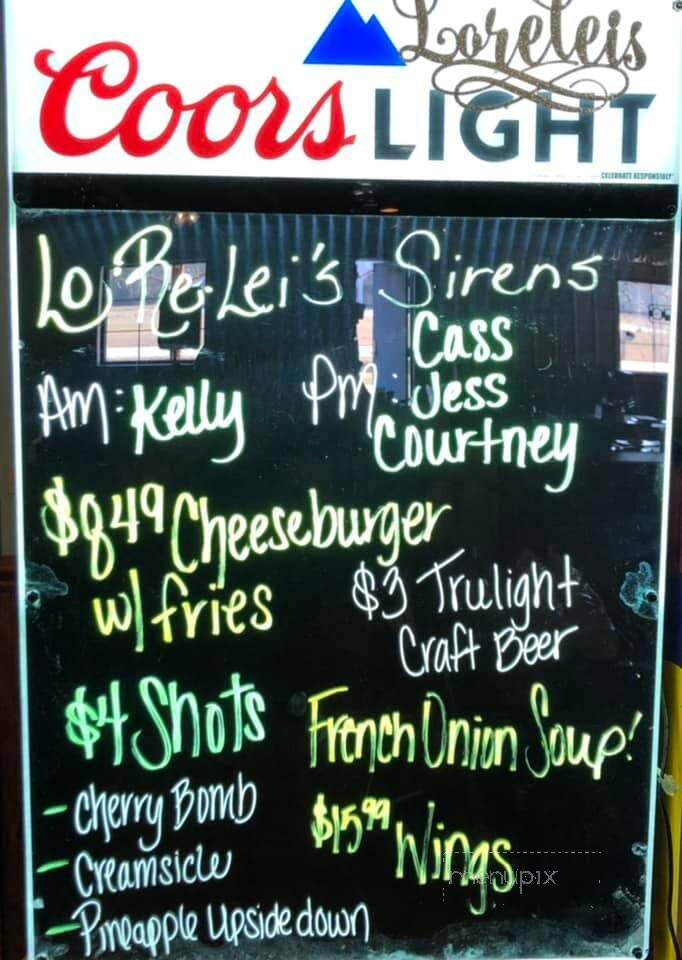 Loreleis
Coors LIGHT
CELEBRATE RESPONSIBLY®
Lo·Re·Lei's Sirens
Am: Kelly
Pm: Cass
Jess
Courtney
$8.49 Cheeseburger
w/ fries
$3 Trulight
Craft Beer
$4 Shots
- Cherry Bomb
- Creamsicle
- Pineapple Upside down
French Onion Soup!
$15.99 Wings
menupix